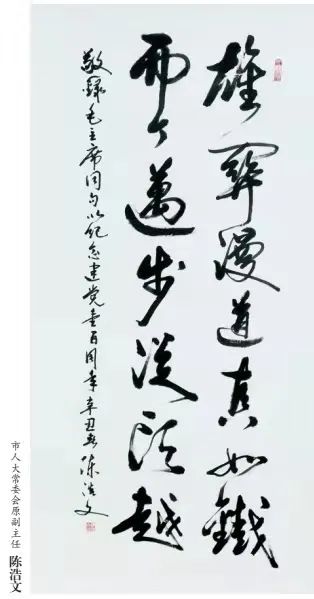 雄關漫道真如鐵
而今邁步從頭越
敬録毛主席词句以纪念建党壹百周年辛丑春陈浩文
市人大常委会原副主任 陈浩文